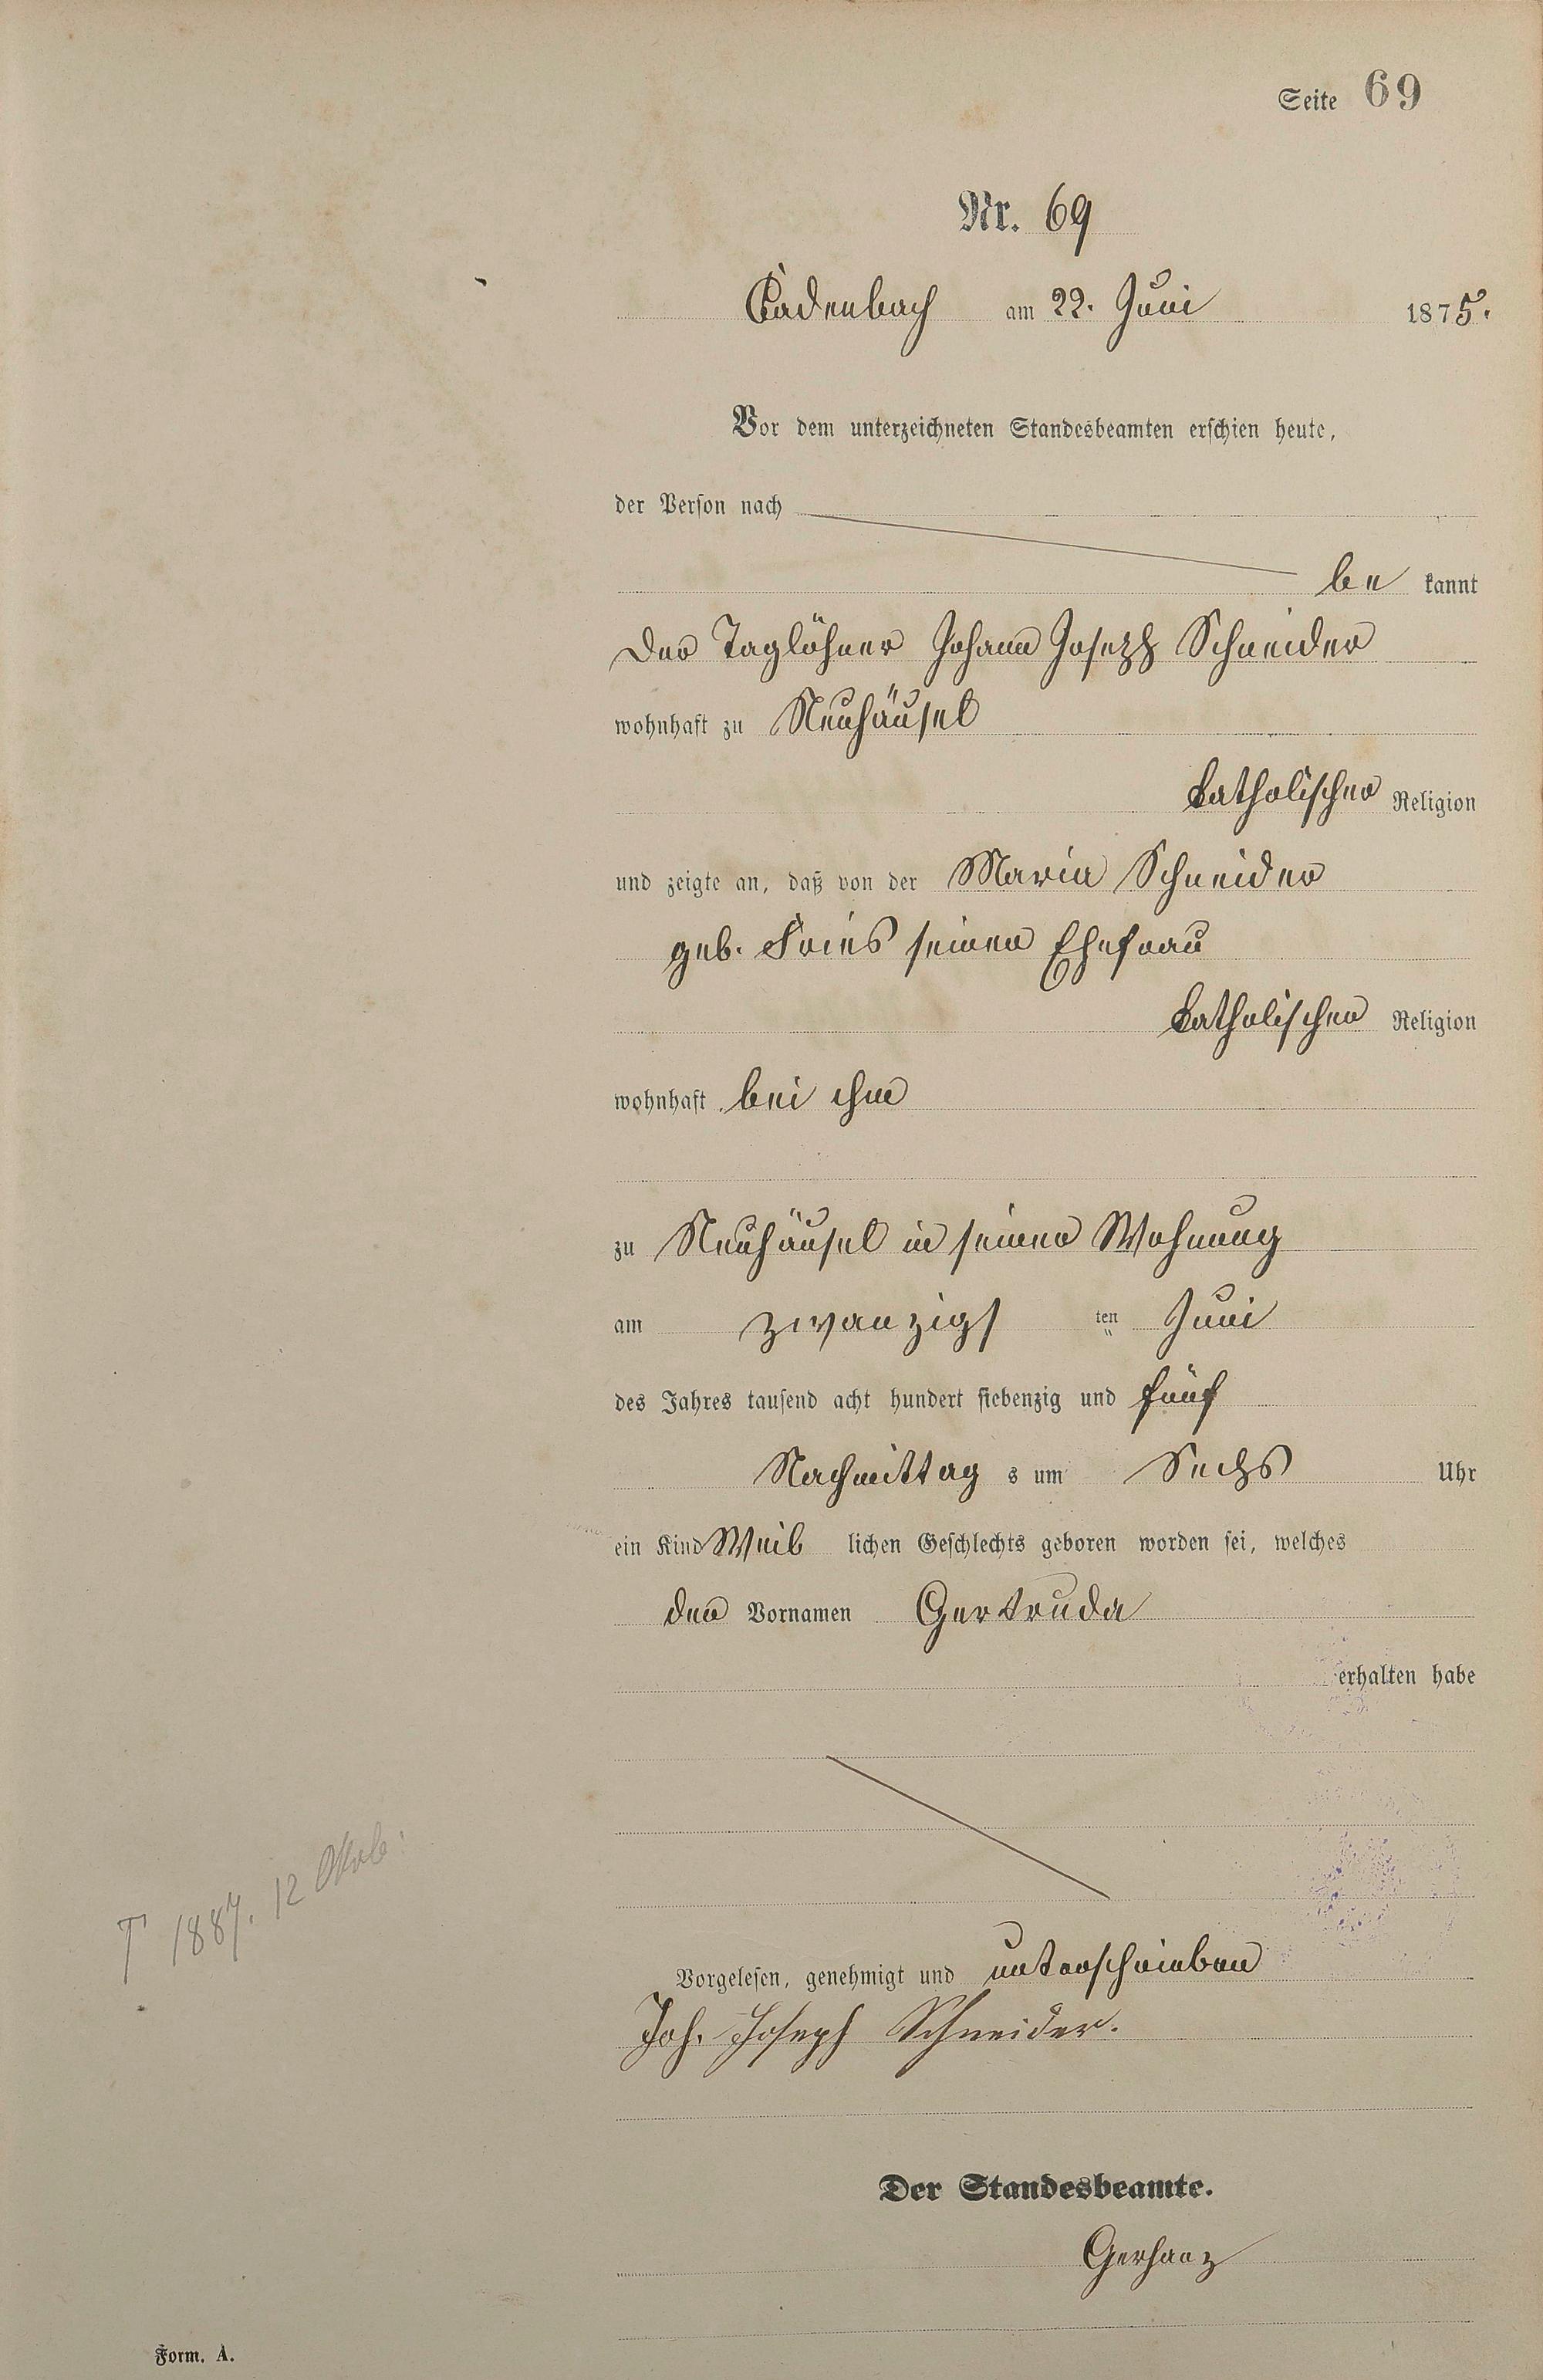 Seite 69
Nr. 69
Cadenbach am 22. Juni 1875.
Vor dem unterzeichneten Standesbeamten erschien heute,
der Person nach
be kannt
der Taglöhner Johann Joseph Schneider
wohnhaft zu Neuhäusel
katholischer Religion
und zeigte an, daß von der Maria Schneider
geb. Fries seiner Ehefrau
katholischer Religion
wohnhaft bei ihm
zu Neuhäusel in seiner Wohnung
am zwanzigs ten Juni
des Jahres tausend acht hundert siebenzig und fünf
Nachmittag s um Sechs Uhr
ein Kind Weib lichen Geschlechts geboren worden sei, welches
den Vornamen Gertruda
erhalten habe
Vorgelesen, genehmigt und unterschrieben
Joh. Joseph Schneider.
Der Standesbeamte.
Gerhanz
Form. A.
† 1887. 12 Oktob.